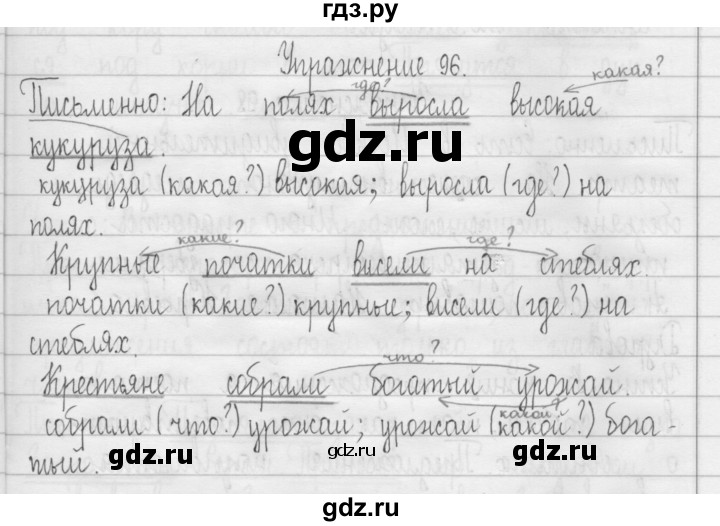 гдз.ру
Упражнение 96.
где? какая?
Письменно: На полях выросла высокая
кукуруза.
кукуруза (какая?) высокая; выросла (где?) на
полях.
какие? где?
Крупные початки висели на стеблях.
початки (какие?) крупные; висели (где?) на
стеблях.
что?
Крестьяне собрали богатый урожай.
какой?
собрали (что?) урожай; урожай (какой?) бога-
тый.
gdz.ru
gdz.ru
gdz.ru
gdz.ru
gdz.ru
gdz.ru
gdz.ru
gdz.ru
gdz.ru